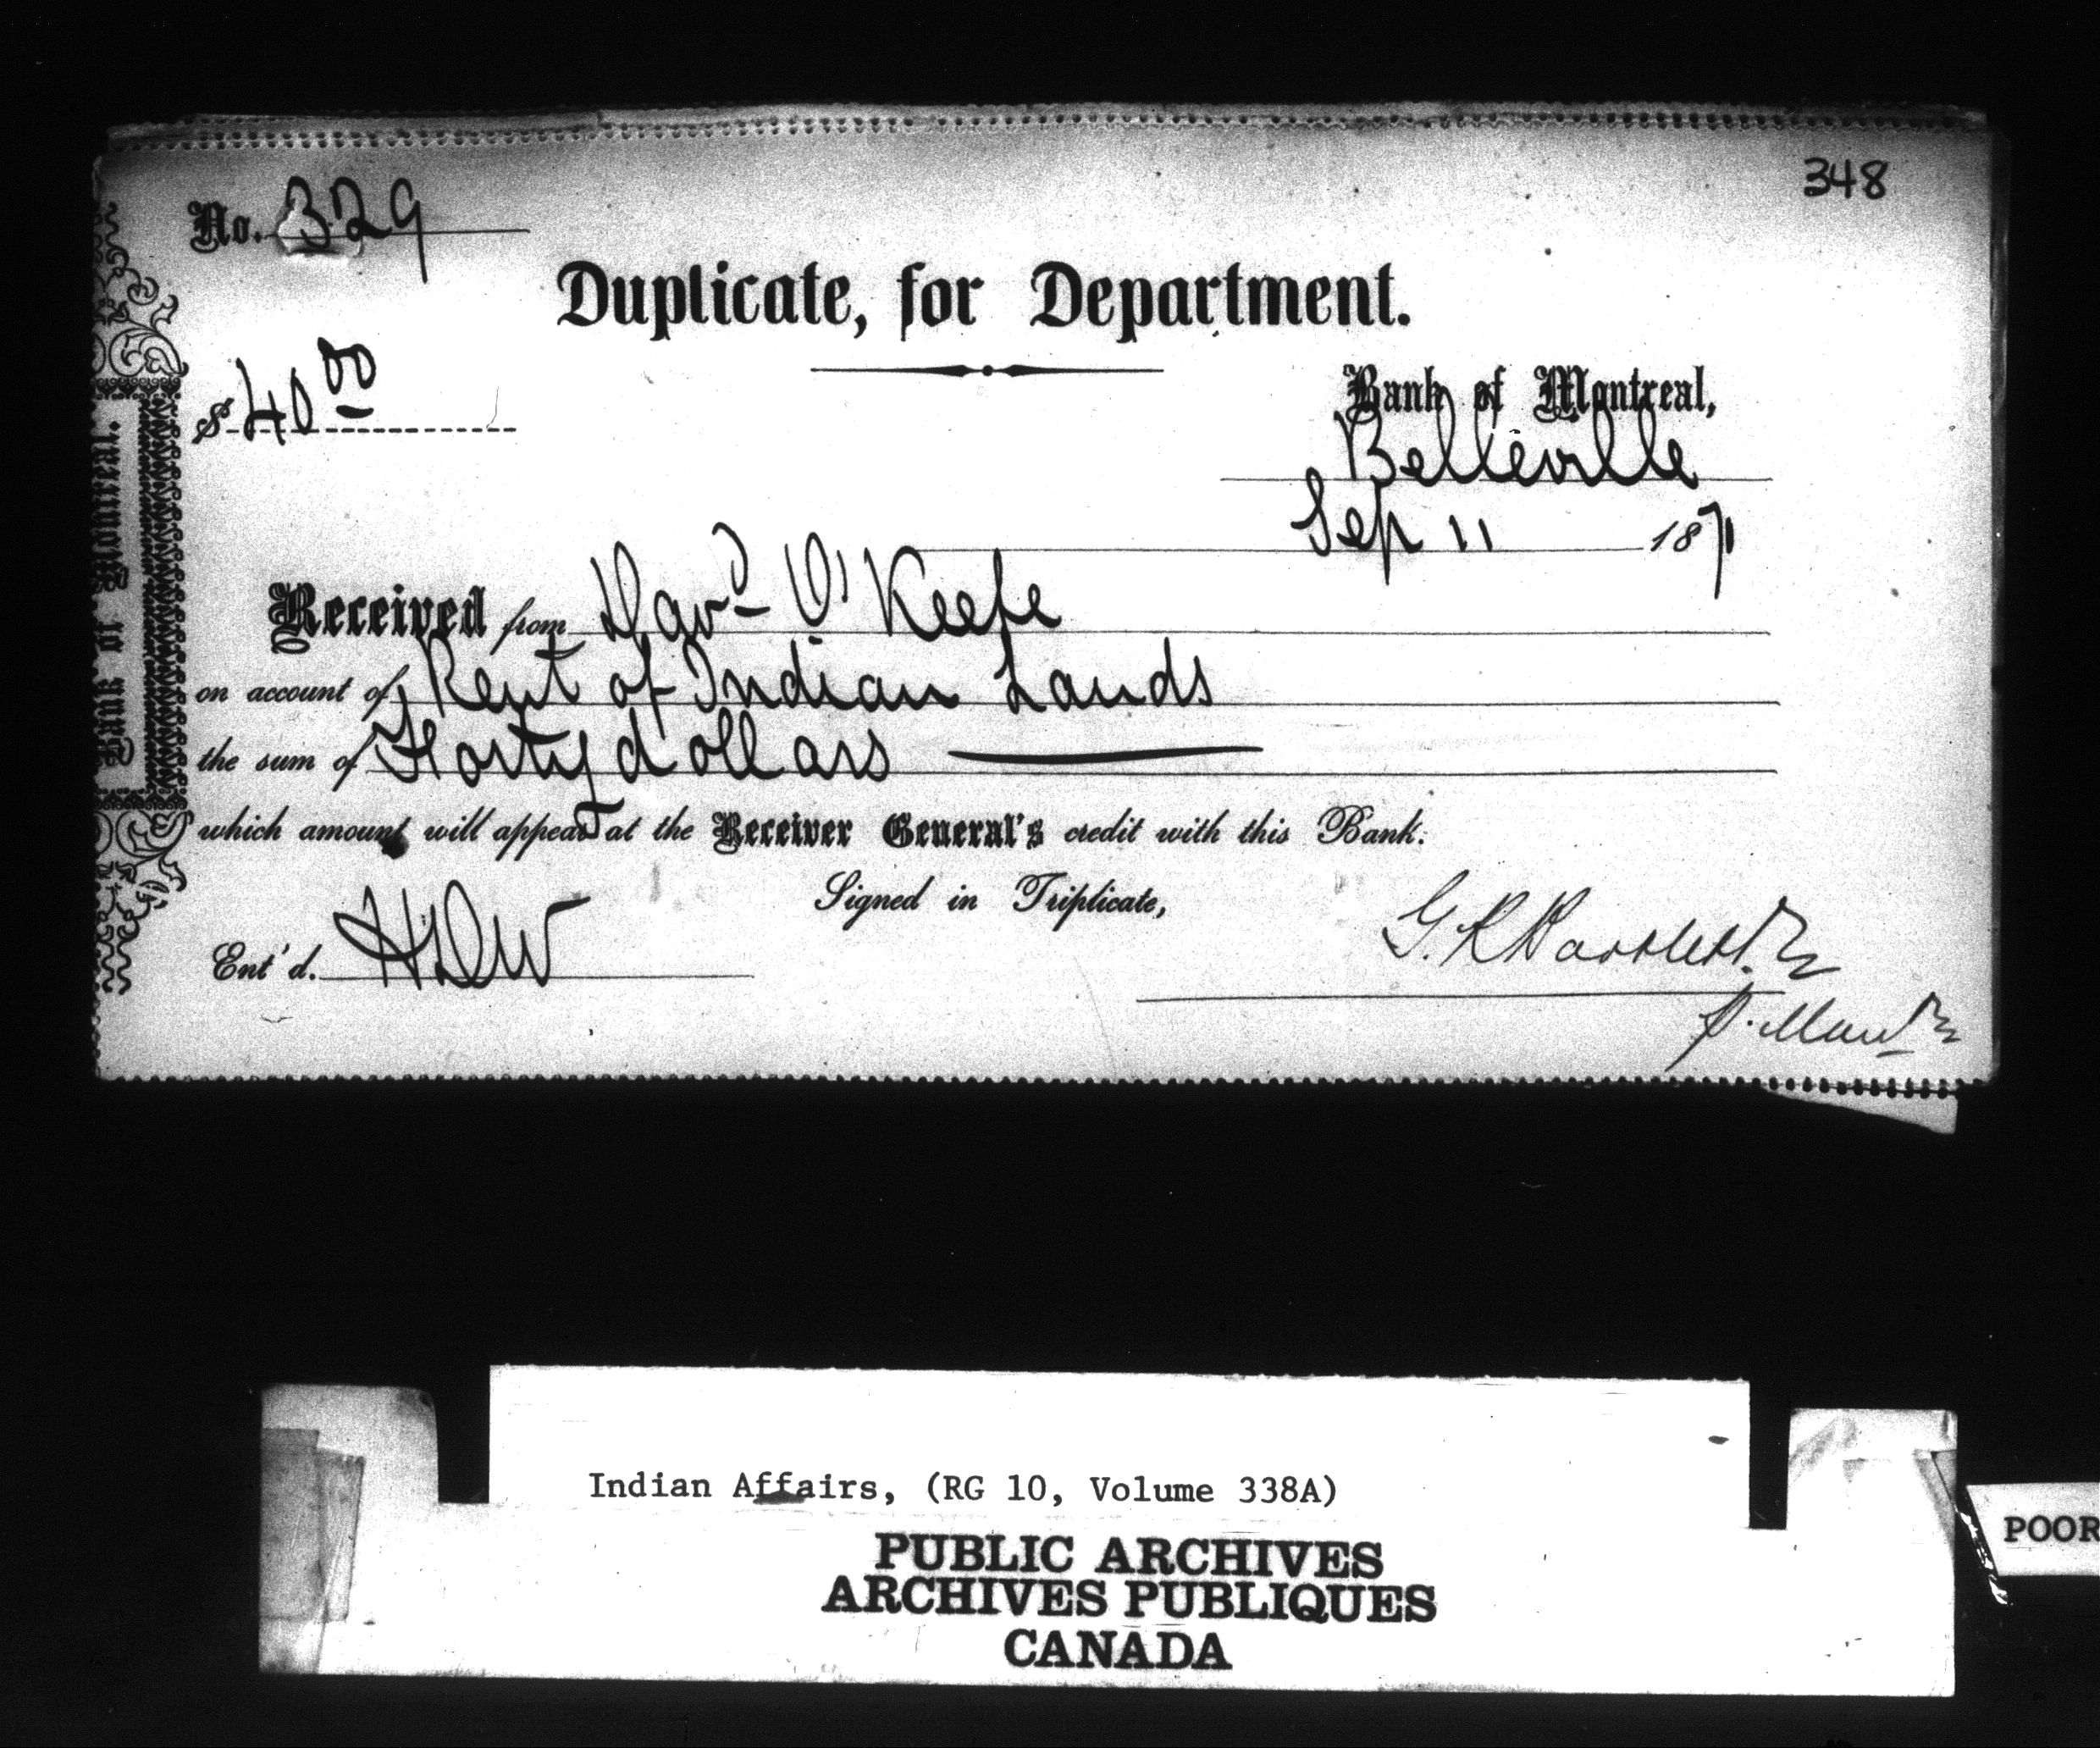 348
No. 329
Duplicate, for Department.
$ 40 00
Bank of Montreal,
Belleville
Sep 11 1871
Received from Davd O'Keefe
on account of Rent of Indian Lands
the sum of Forty dollars
which amount will appear at the Receiver General's credit with this Bank.
Signed in Triplicate,
G. R. Bartlett.
Ent'd. HDW
Bank of Montreal.
Indian Affairs, (RG 10, Volume 338A)
PUBLIC ARCHIVES
ARCHIVES PUBLIQUES
CANADA
POOR